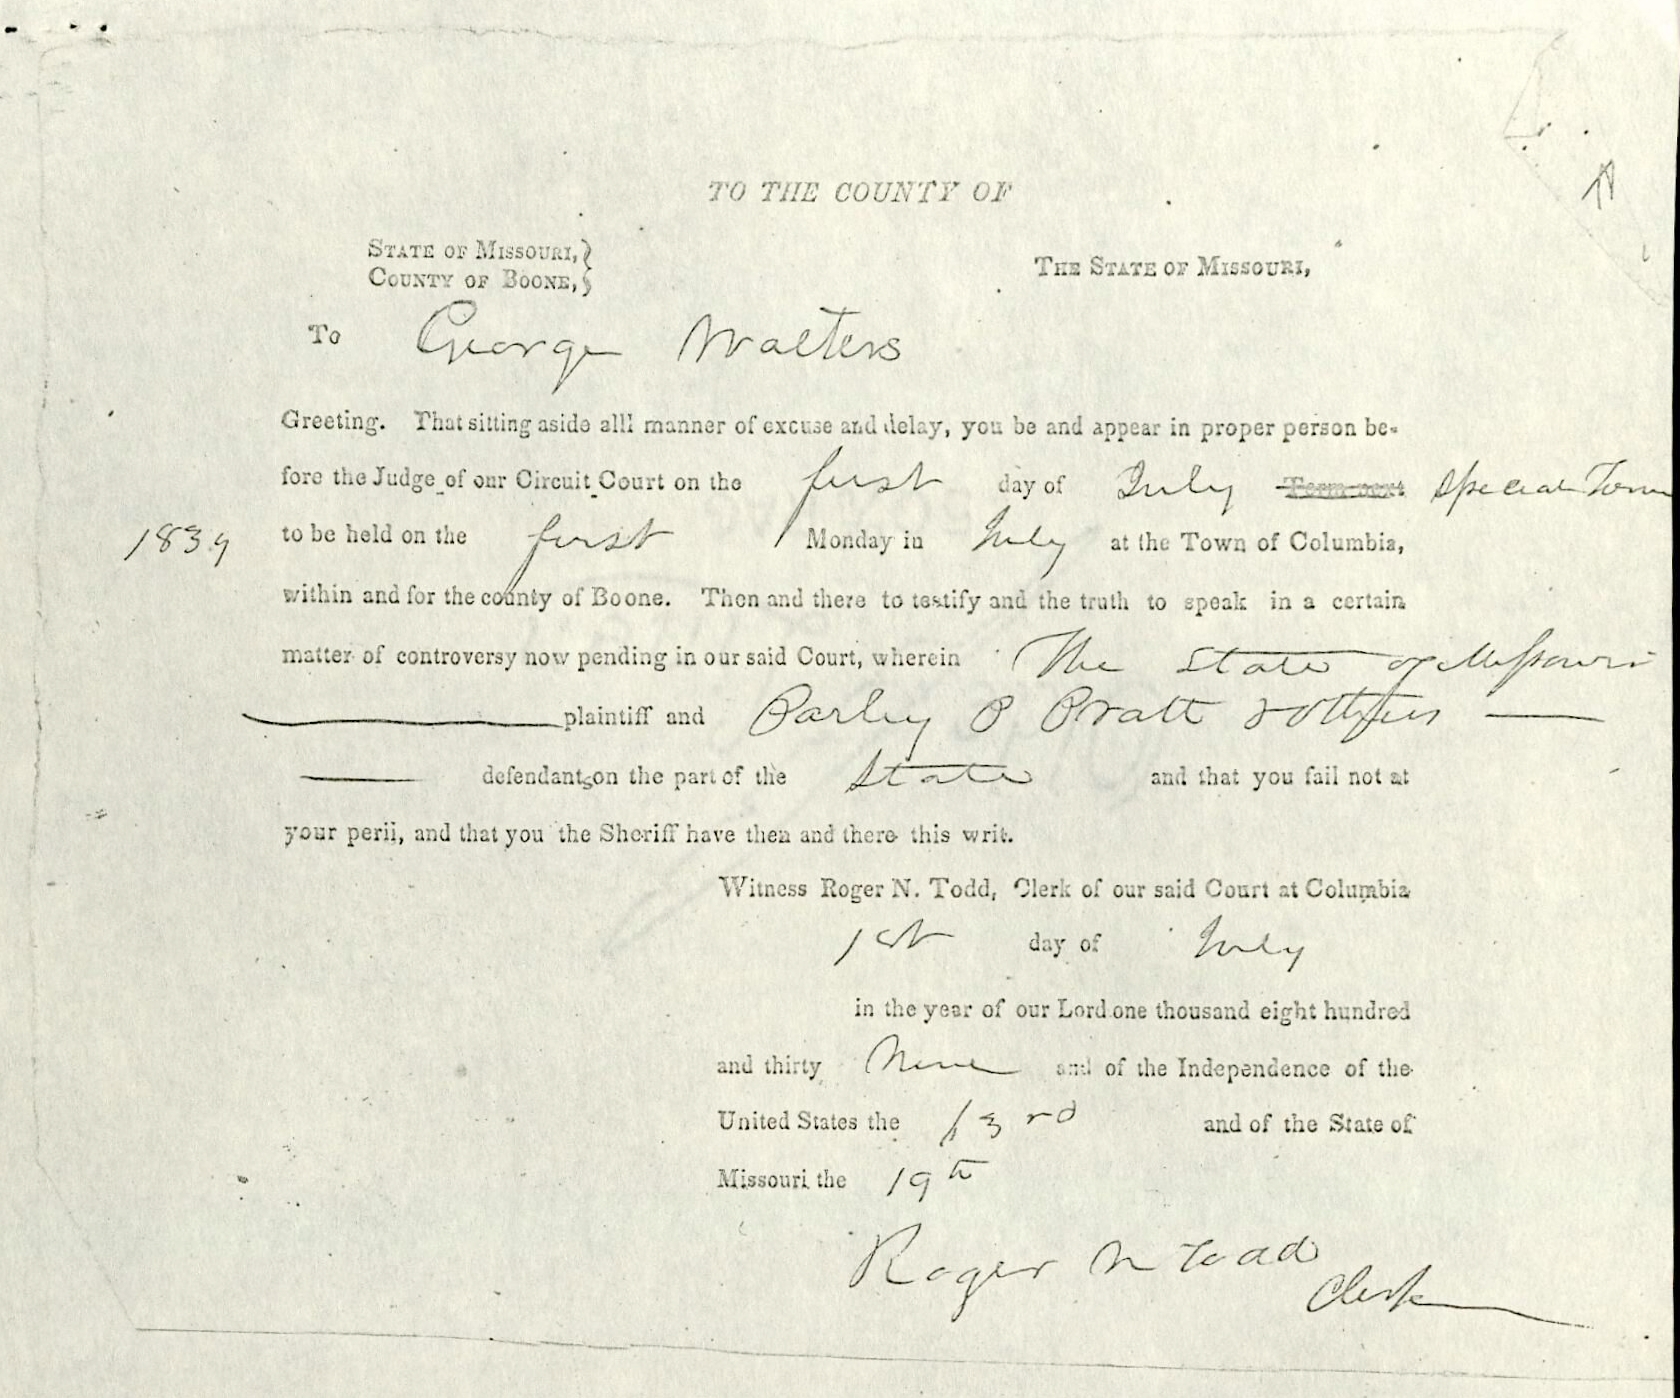 TO THE COUNTY OF
STATE OF MISSOURI,
COUNTY OF BOONE,
THE STATE OF MISSOURI,
To George Walters
Greeting. That sitting aside alll manner of excuse and delay, you be and appear in proper person be-
fore the Judge of our Circuit Court on the first day of July Term next Special Term
1839 to be held on the first Monday in July at the Town of Columbia,
within and for the county of Boone. Then and there to testify and the truth to speak in a certain
matter of controversy now pending in our said Court, wherein The State of Missouri
plaintiff and Parley P Pratt & others
defendants on the part of the State and that you fail not at
your peril, and that you the Sheriff have then and there this writ.
Witness Roger N. Todd, Clerk of our said Court at Columbia
1st day of July
in the year of our Lord one thousand eight hundred
and thirty Nine and of the Independence of the
United States the 63rd and of the State of
Missouri the 19th
Roger N Todd
Clerk